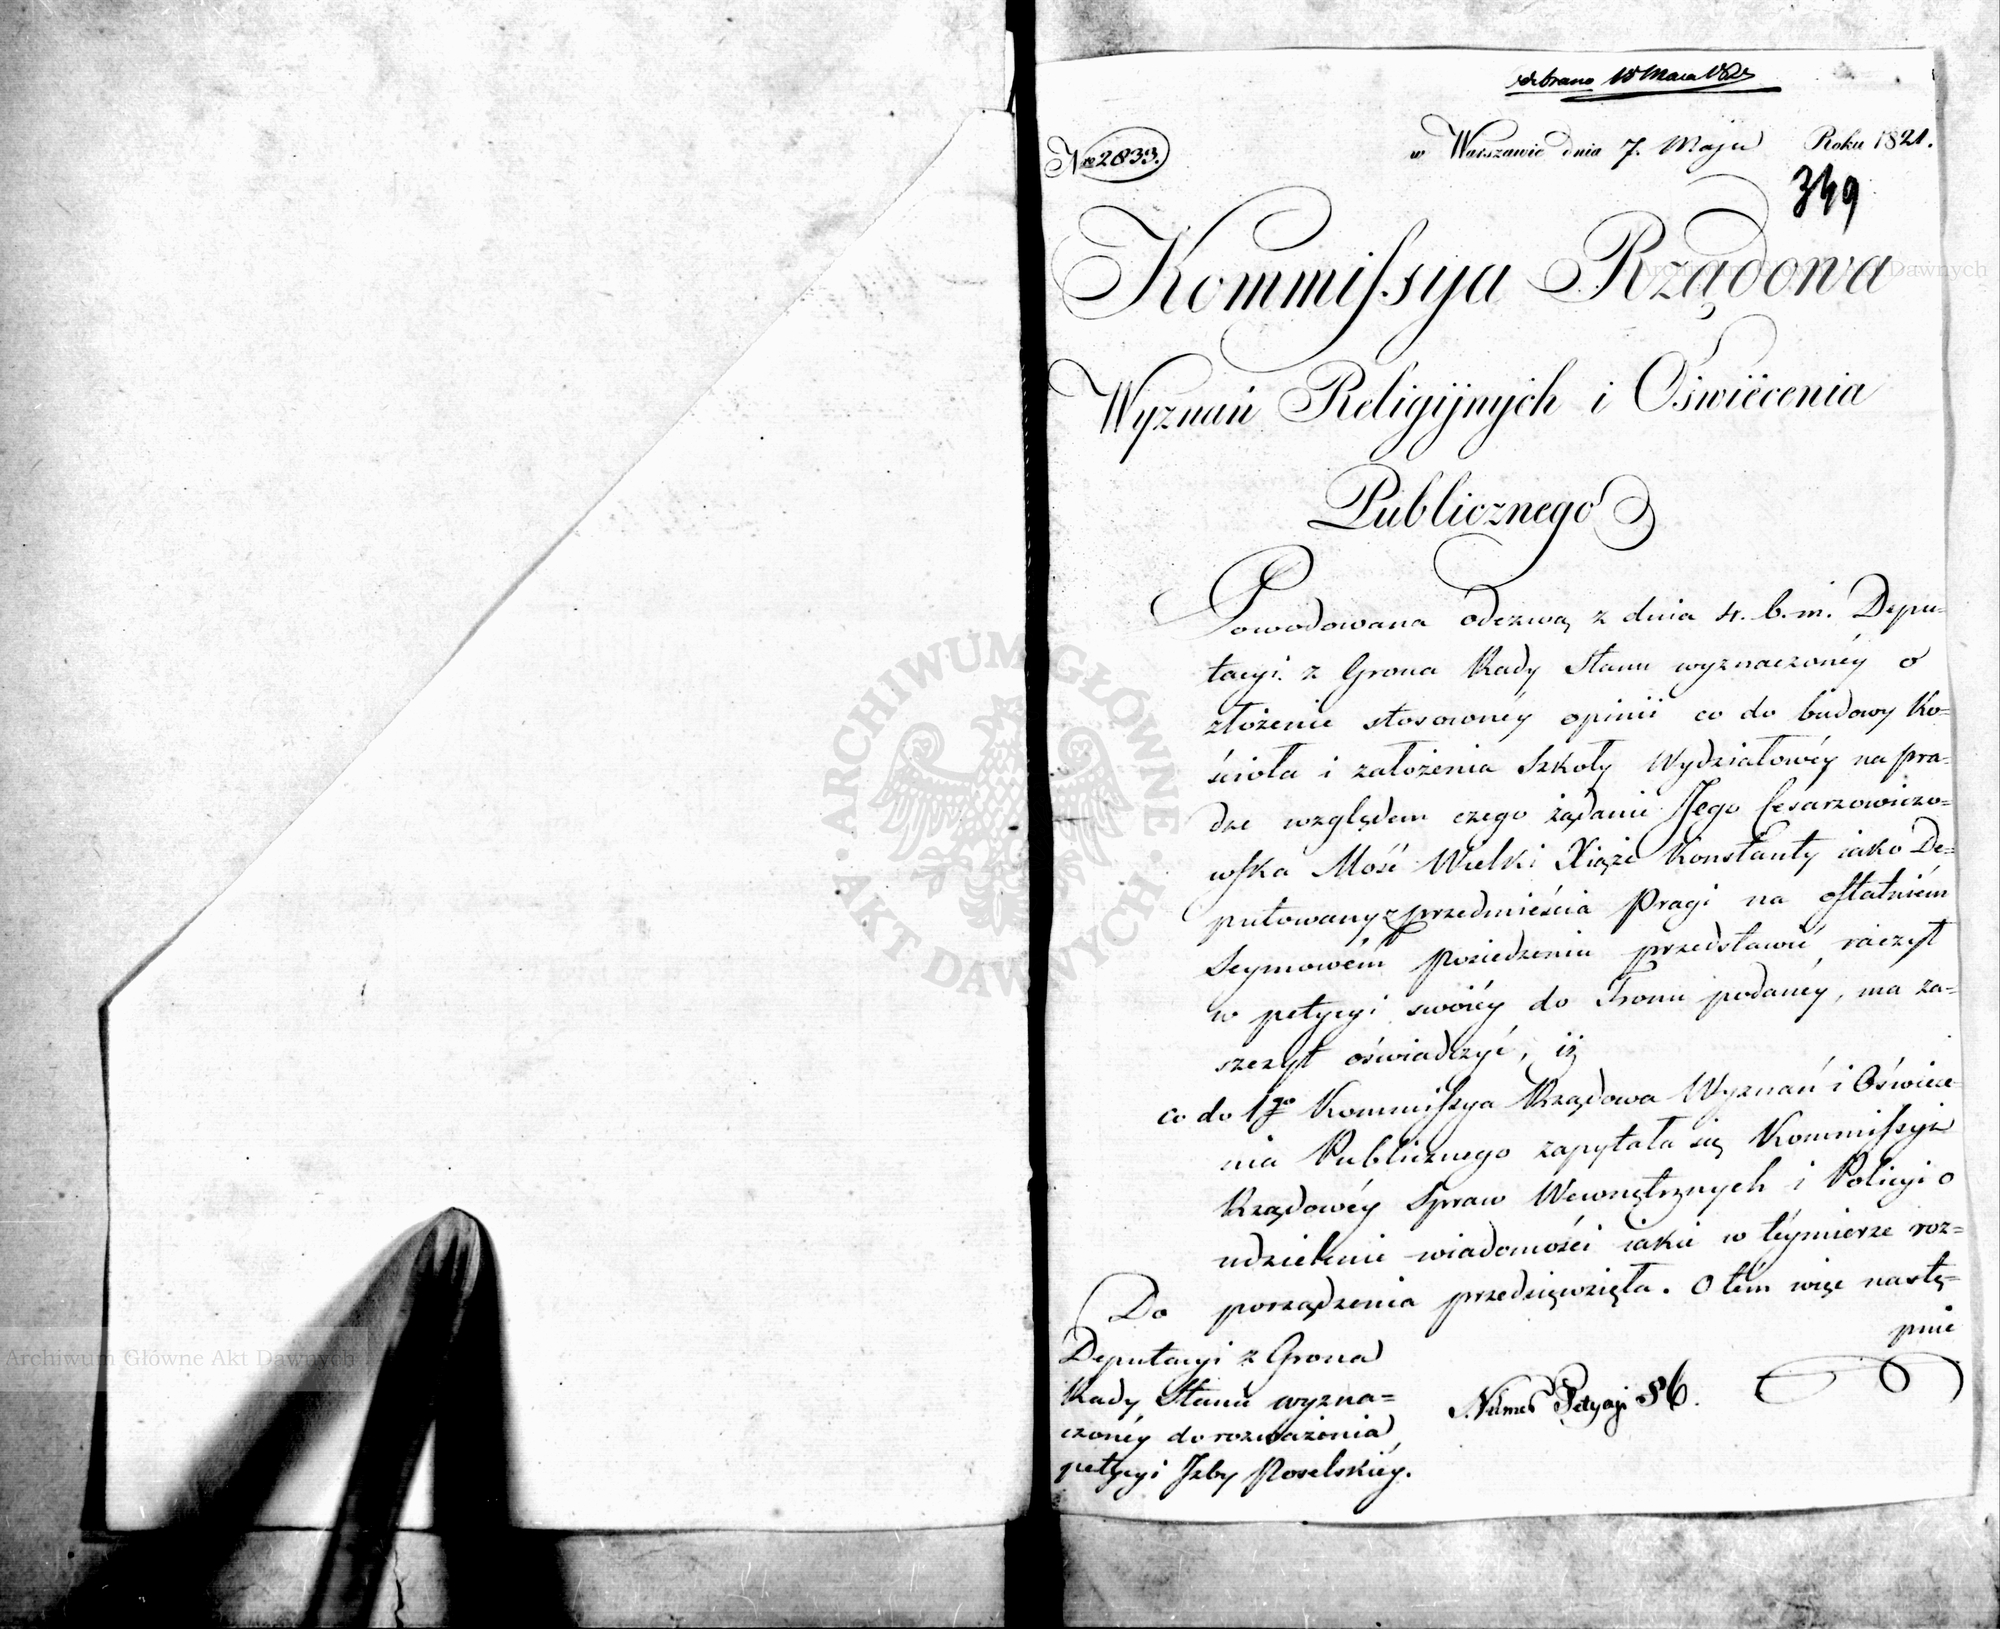 odebrano 10 Maia 1821
Nro 2833.
w Warszawie dnia 7. Maja Roku 1821.
349
Kommissya Rządowa
Wyznań Religijnych i Oświécenia
Publicznego
Powodowana odezwą z dnia 4. b. m. Depu-
tacyi z Grona Rady Stanu wyznaczonéy o
złożenie stosownéy opinii co do budowy Ko-
ścioła i założenia Szkoły Wydziałowéy na Pra-
dze względem czego żądanie Jego Cesarzowiczo-
wska Mość Wielki Xiąże Konstanty iako De-
putowany z przedmieścia Pragi na ostatniém
Seymowém posiedzeniu przedstawić raczył
w petycyi swoiéy do Tronu podanéy, ma za-
szczyt oświadczyć, iż
co do 1go Kommissya Rządowa Wyznań i Oświece-
nia Publicznego zapytała się Kommissyi
Rządowéy Spraw Wewnętrznych i Policyi o
udzielenie wiadomości iakie w téymierze roz-
porządzenia przedsięwzięła. O tém więc nastę-
pnie
Do
Deputacyi z Grona
Rady Stanu wyzna-
czonéy do rozważenia
petycyi Izby Poselskiéy.
Numer Petycyi 86.
ARCHIWUM GŁÓWNE
AKT DAWNYCH
Archiwum Główne Akt Dawnych
Archiwum Główne Akt Dawnych